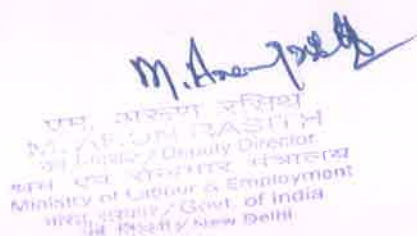 एम. अरुण रसिथ
M. ARUN RASITH
Deputy Director
श्रम एवं रोजगार मंत्रालय
Ministry of Labour & Employment
भारत सरकार / Govt. of India
नई दिल्ली / New Delhi